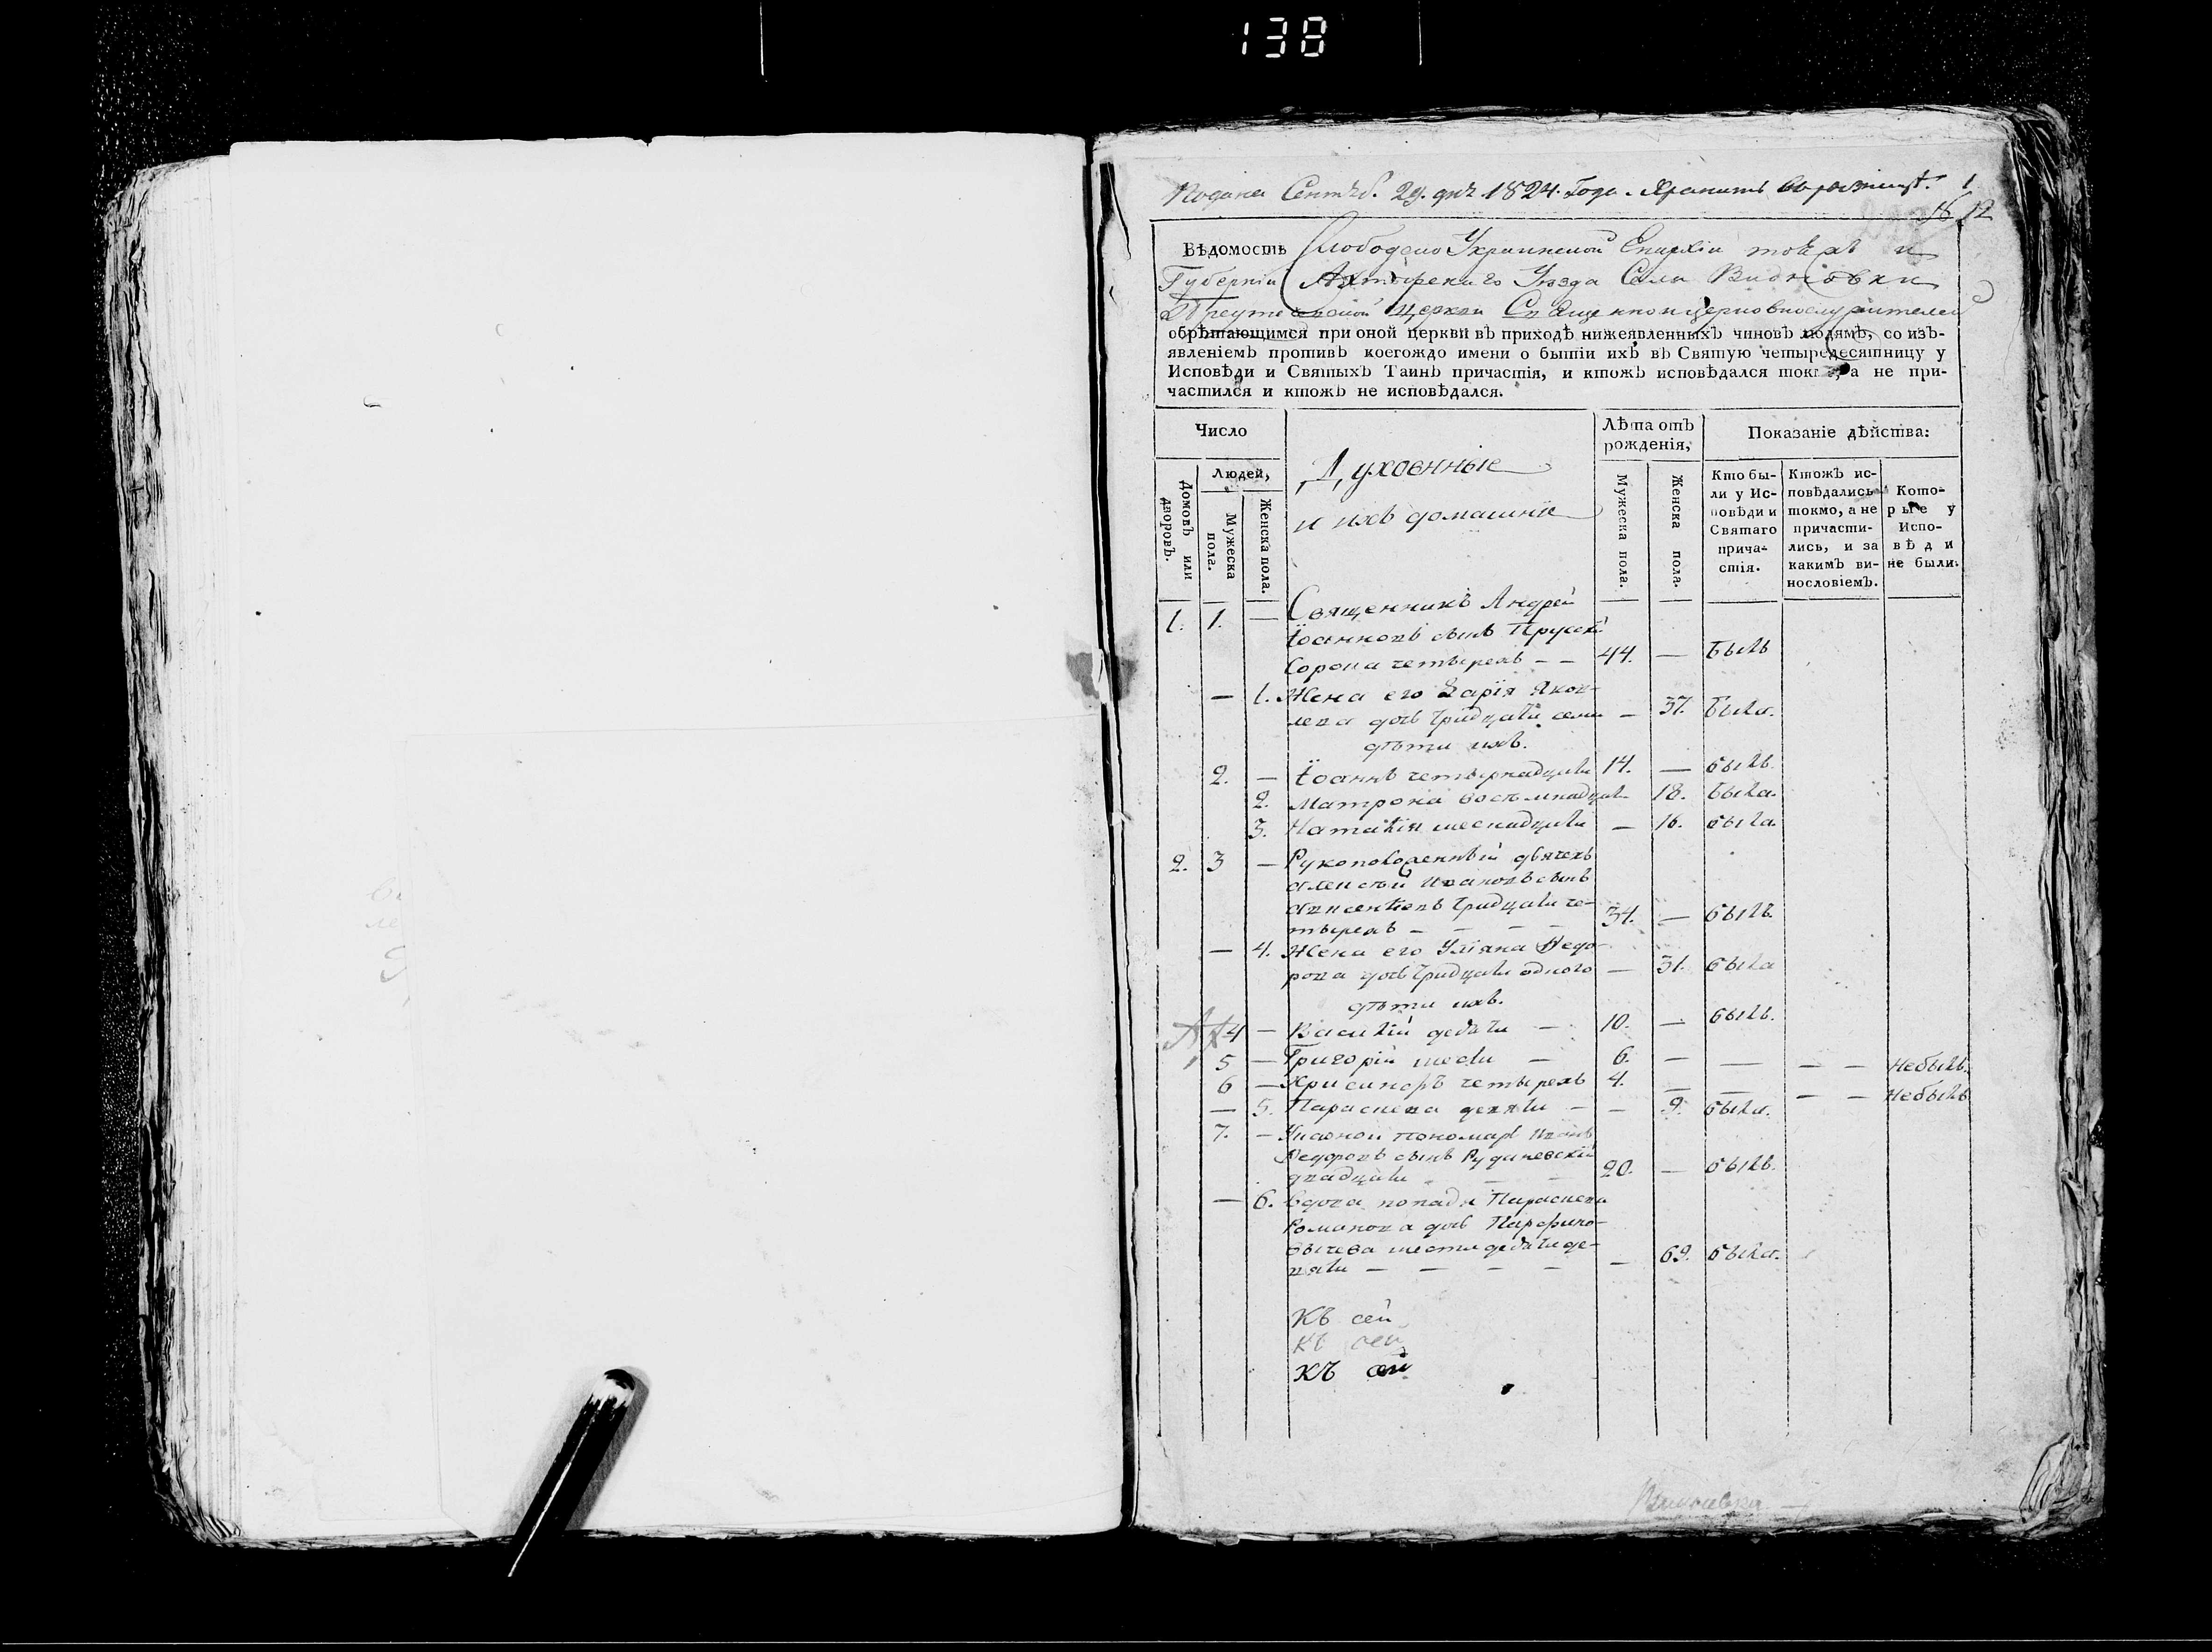 138
Подана Сентяб. 29. дня. 1824. Года. Хранить
1
16 12
Вѣдомость Слободско Украинской Епархіи тояжъ и
Губерніи Ахтырскаго Уезда Села
церкви Священноицерковнослужителей
обрѣтающимся при оной церкви въ приходѣ нижеявленныхъ чиновъ людямъ, со изъ-
явленіемъ противъ коегождо имени о бытіи ихъ въ Святую четыредесятницу у
Исповѣди и Святыхъ Таинъ причастія, и ктожъ исповѣдался токмо, а не при-
частился и ктожъ не исповѣдался.
Число
Людей,
Домовъ или дворовъ.
Мужеска пола.
Женска пола.
Духовнніе
и ихъ домашніе
Лѣта отъ рожденія,
Мужеска пола.
Женска пола.
Показаніе дѣйства:
Кто бы-
ли у Ис-
повѣди и
Святаго
прича-
стія.
Ктожъ ис-
повѣдались
токмо, а не
причасти-
лись, и за
какимъ ви-
нословіемъ.
Кото-
рые у
Испо-
вѣди
не были.
1. 1. — Священникъ Андрей
Іоанновъ сынъ Прускі
Сорока четырехъ — — 44. — Былъ
— 1. Жена его Дарія Яков-
лева дочь тридцати семи — 37. Была.
дѣти ихъ.
2. — Іоаннъ четырнадцати 14. — былъ.
2. Матрона восемнадцат. 18. Была.
3. Наталія шеснадцати — 16. была.
2. 3 — Рукоположенный дьячекъ
Алексѣй Ивановъ сынъ
тридцати че-
тырехъ — — — — 34. — былъ.
— 4. Жена его Уліяна Ѳедо-
рова дочь тридцати одного — 31. была
дѣти ихъ.
4 — Василій десяти — 10. — былъ.
5 — Григорій шести — 6. — — — — Небылъ.
6 — четырехъ 4. — — — — Небылъ
— 5. Параскева девяти — — 9. была.
7. — пономарь Иванъ
Ѳедоровъ сынъ
двадцати — — — 20. — былъ.
— 6. Вдова попадя Параскева
Романова дочь
шестидесяти де-
вяти — — — — — 69. была.
Къ сей
Къ сей
Къ сей